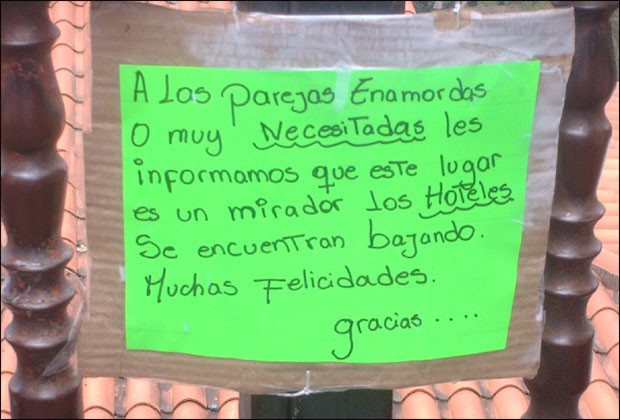 A Las parejas Enamordas
O muy Necesitadas les
informamos que este lugar
es un mirador los Hoteles
Se encuentran bajando.
Muchas Felicidades.
gracias ....